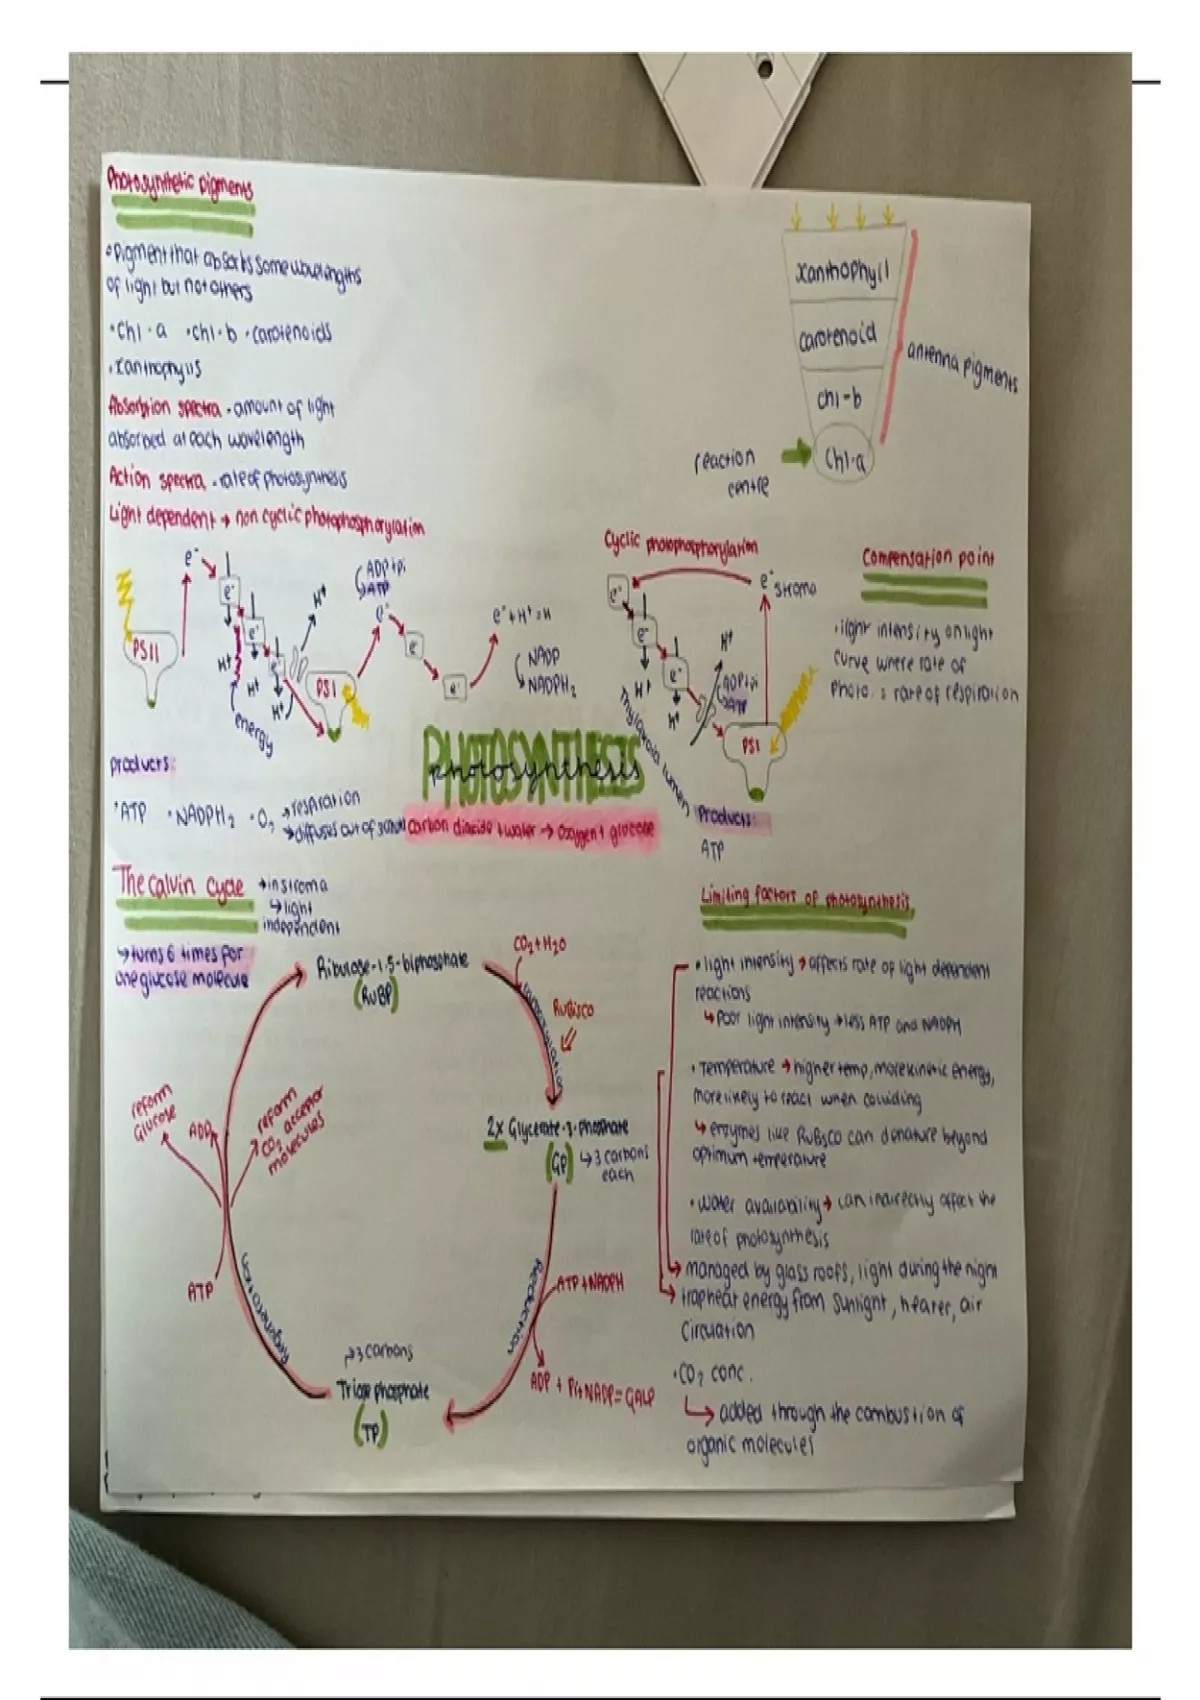 Photosynthetic pigments
• pigment that absorbs some wavelengths
of light but not others
• Chl-a • chl-b • carotenoids
• xanthophylls
Absorption spectra - amount of light
absorbed at each wavelength
Action spectra - rate of photosynthesis
xanthophyll
carotenoid
chl-b
Chl-a
antenna pigments
reaction
centre
Light dependent → non cyclic photophosphorylation
PSII
e⁻
e⁻
e⁻
e⁻
H⁺
H⁺
H⁺
H⁺
energy
PSI
ADP+pi
ATP
e⁻
e⁻
e⁻
e⁻ + H⁺ = H
NADP
NADPH₂
products:
• ATP • NADPH₂ • O₂ → respiration
→ diffuses out of
Cyclic photophosphorylation
e⁻
e⁻
e⁻
e⁻ stroma
H⁺
H⁺
H⁺
ADP+pi
ATP
PSI
thylakoid lumen
Products:
ATP
Compensation point
• light intensity on light
curve where rate of
photo. = rate of respiration
PHOTOSYNTHESIS
photosynthesis
carbon dioxide + water → oxygen + glucose
The calvin cycle → in stroma
↳ light
independent
→ turns 6 times for
one glucose molecule
Ribulose-1,5-biphosphate
(RuBP)
CO₂ + H₂O
RuBisCO
2x Glycerate-3-phosphate
(GP) ↳ 3 carbons
each
Reduction
ATP + NADPH
ADP + Pi + NADP = GALP
→ 3 carbons
Triose phosphate
(TP)
Regeneration
ATP
ADP
reform
Glucose
reform
CO₂ acceptor
molecules
Limiting factors of photosynthesis
• light intensity → affects rate of light dependent
reactions
↳ Poor light intensity → less ATP and NADPH
• Temperature → higher temp, more kinetic energy,
more likely to react when colliding
↳ enzymes like RuBsCO can denature beyond
optimum temperature
• Water availability → can indirectly affect the
rate of photosynthesis
→ managed by glass roofs, light during the night
→ trap heat energy from sunlight, heater, air
circulation
• CO₂ conc.
↳ added through the combustion of
organic molecules